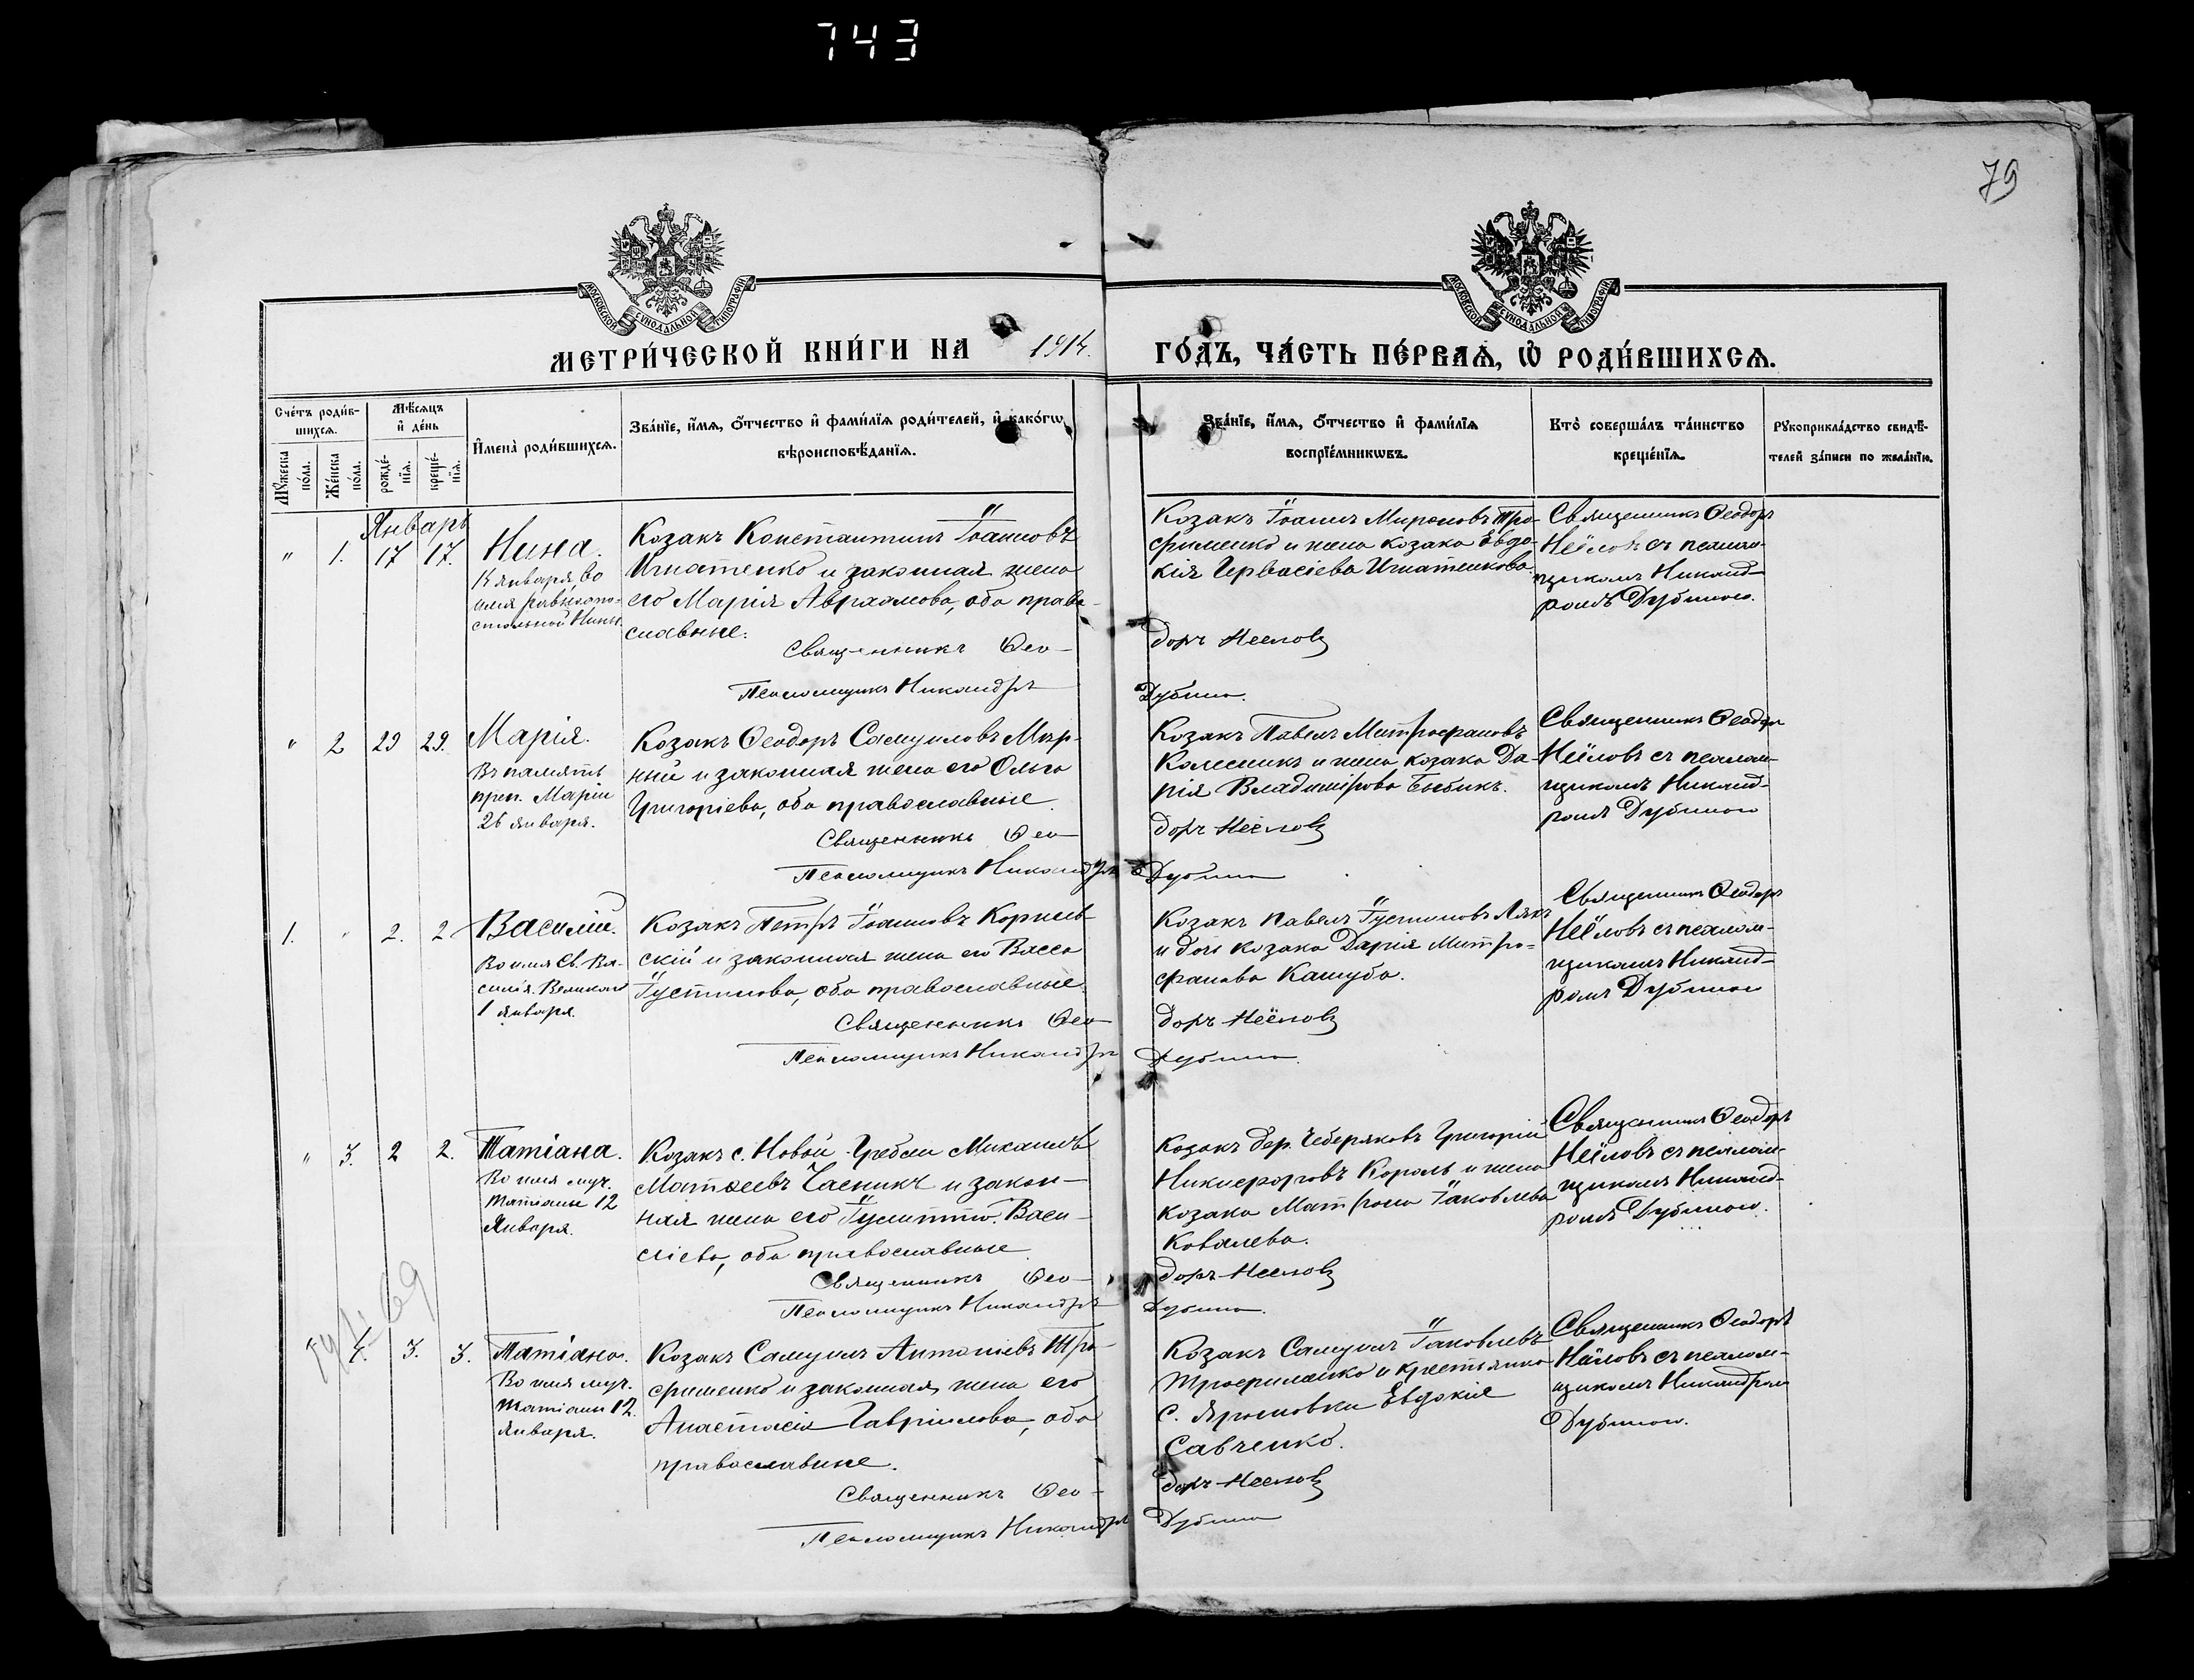 743
79
МОСКОВСКОЙ СѴНОДАЛЬНОЙ ТИПОГРАФІИ
МОСКОВСКОЙ СѴНОДАЛЬНОЙ ТИПОГРАФІИ
МЕТРИ́ЧЕСКОЙ КНИ́ГИ НА 1914. ГО́ДЪ, ЧА́СТЬ ПЕ́РВАѦ, Ѡ҆ РОДИ́ВШИХСѦ.
Сче́тъ роди́в-
шихсѧ.
Мѣ́сѧцъ
и҆ де́нь
Мꙋ́жеска по́ла.
Же́нска по́ла.
рожде́-нїѧ.
креще́-нїѧ.
И҆мена̀ роди́вшихсѧ.
Зва́нїе, и҆́мѧ, ѻ҆́тчество и҆ фами́лїѧ роди́телей, и҆ како́гѡ
вѣроисповѣ́данїѧ.
Зва́нїе, и҆́мѧ, ѻ҆́тчество и҆ фами́лїѧ
воспрїе́мникѡвъ.
Кто̀ соверша́лъ та́инство
креще́нїѧ.
Рꙋкоприкла́дство свидѣ́-
телей за́писи по жела́нїю.
Январь
" 1. 17 17.
Нина.
14 января, во
имя равноапо-
стольной Нины.
Козакъ Константинъ Іоанновъ
Игнатенко и законная жена
его Марія Авраамова, оба право-
славные.
Священникъ Ѳео-
Псаломщикъ Никандръ
Козакъ Іоаннъ Мироновъ Тро-
фименко и жена козака Евдо-
кія Гервасіева Игнатенкова.
доръ Неёловъ
Дубина.
Священникъ Ѳеодоръ
Неёловъ съ псалом-
щикомъ Никанд-
ромъ Дубиною.
" 2 29 29.
Марія.
Въ память
преп. Маріи
26 января.
Козакъ Ѳеодоръ Самуиловъ Мир-
ный и законная жена его Ольга
Григоріева, оба православные.
Священникъ Ѳео-
Псаломщикъ Никандръ
Козакъ Павелъ Митрофановъ
Колесникъ и жена козака Да-
рія Владимірова Бибикъ.
доръ Неёловъ
Дубина
Священникъ Ѳеодоръ
Неёловъ съ псалом-
щикомъ Никанд-
ромъ Дубиною
1. " 2. 2
Василій.
Во имя Св. Ва-
силія Великаго
1 января.
Козакъ Петръ Іоанновъ Корнев-
скій и законная жена его Васса
Іустинова, оба православные.
Священникъ Ѳео-
Псаломщикъ Никандръ
Козакъ Павелъ Іустиновъ Ляхъ
и дочь козака Дарія Митро-
фанова Кашуба.
доръ Неёловъ
Дубина.
Священникъ Ѳеодоръ
Неёловъ съ псалом-
щикомъ Никанд-
ромъ Дубиною
" 3. 2 2.
Татіана.
Во имя муч.
Татіаны 12
Января.
Козакъ с. Новой-Гребли Михаилъ
Матѳеевъ Часникъ и закон-
ная жена его Іулитта Васи-
ліева, оба православные.
Священникъ Ѳео-
Псаломщикъ Никандръ
Козакъ дер. Чеберяковъ Григорій
Никифоровъ Король и жена
козака Матрона Іаковлева
Ковалева.
доръ Неёловъ
Дубина.
Священникъ Ѳеодоръ
Неёловъ съ псалом-
щикомъ Никанд-
ромъ Дубиною.
4. 3. 3.
Татіана.
Во имя муч.
Татіаны 12.
Января.
Козакъ Самуилъ Антоніевъ Тро-
фименко и законная жена его
Анастасія Гавріилова, оба
православные.
Священникъ Ѳео-
Псаломщикъ Никандръ
Козакъ Самуилъ Іаковлевъ
Трофименко и крестьянка
с. Ярошовки Евдокія
Савченко.
доръ Неёловъ
Дубина
Священникъ Ѳеодоръ
Неёловъ съ псалом-
щикомъ Никандромъ
Дубиною.